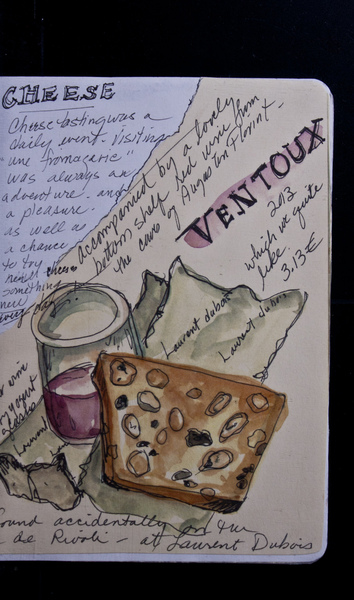 CHEESE
Cheese tasting was a
daily event. Visiting
une "fromagerie"
was always an
adventure. and
a pleasure.
as well as
a chance
to try
something
new
every day
accompanied by a lovely
bottom shelf red wine from
the cave of Augustin Florint -
VENTOUX
2013
which we quite
like.
3,13€
Laurent dubois
Laurent dubois
wine
yogurt
glass
Laurent
found accidentally on the
de Rivoli - at Laurent Dubois